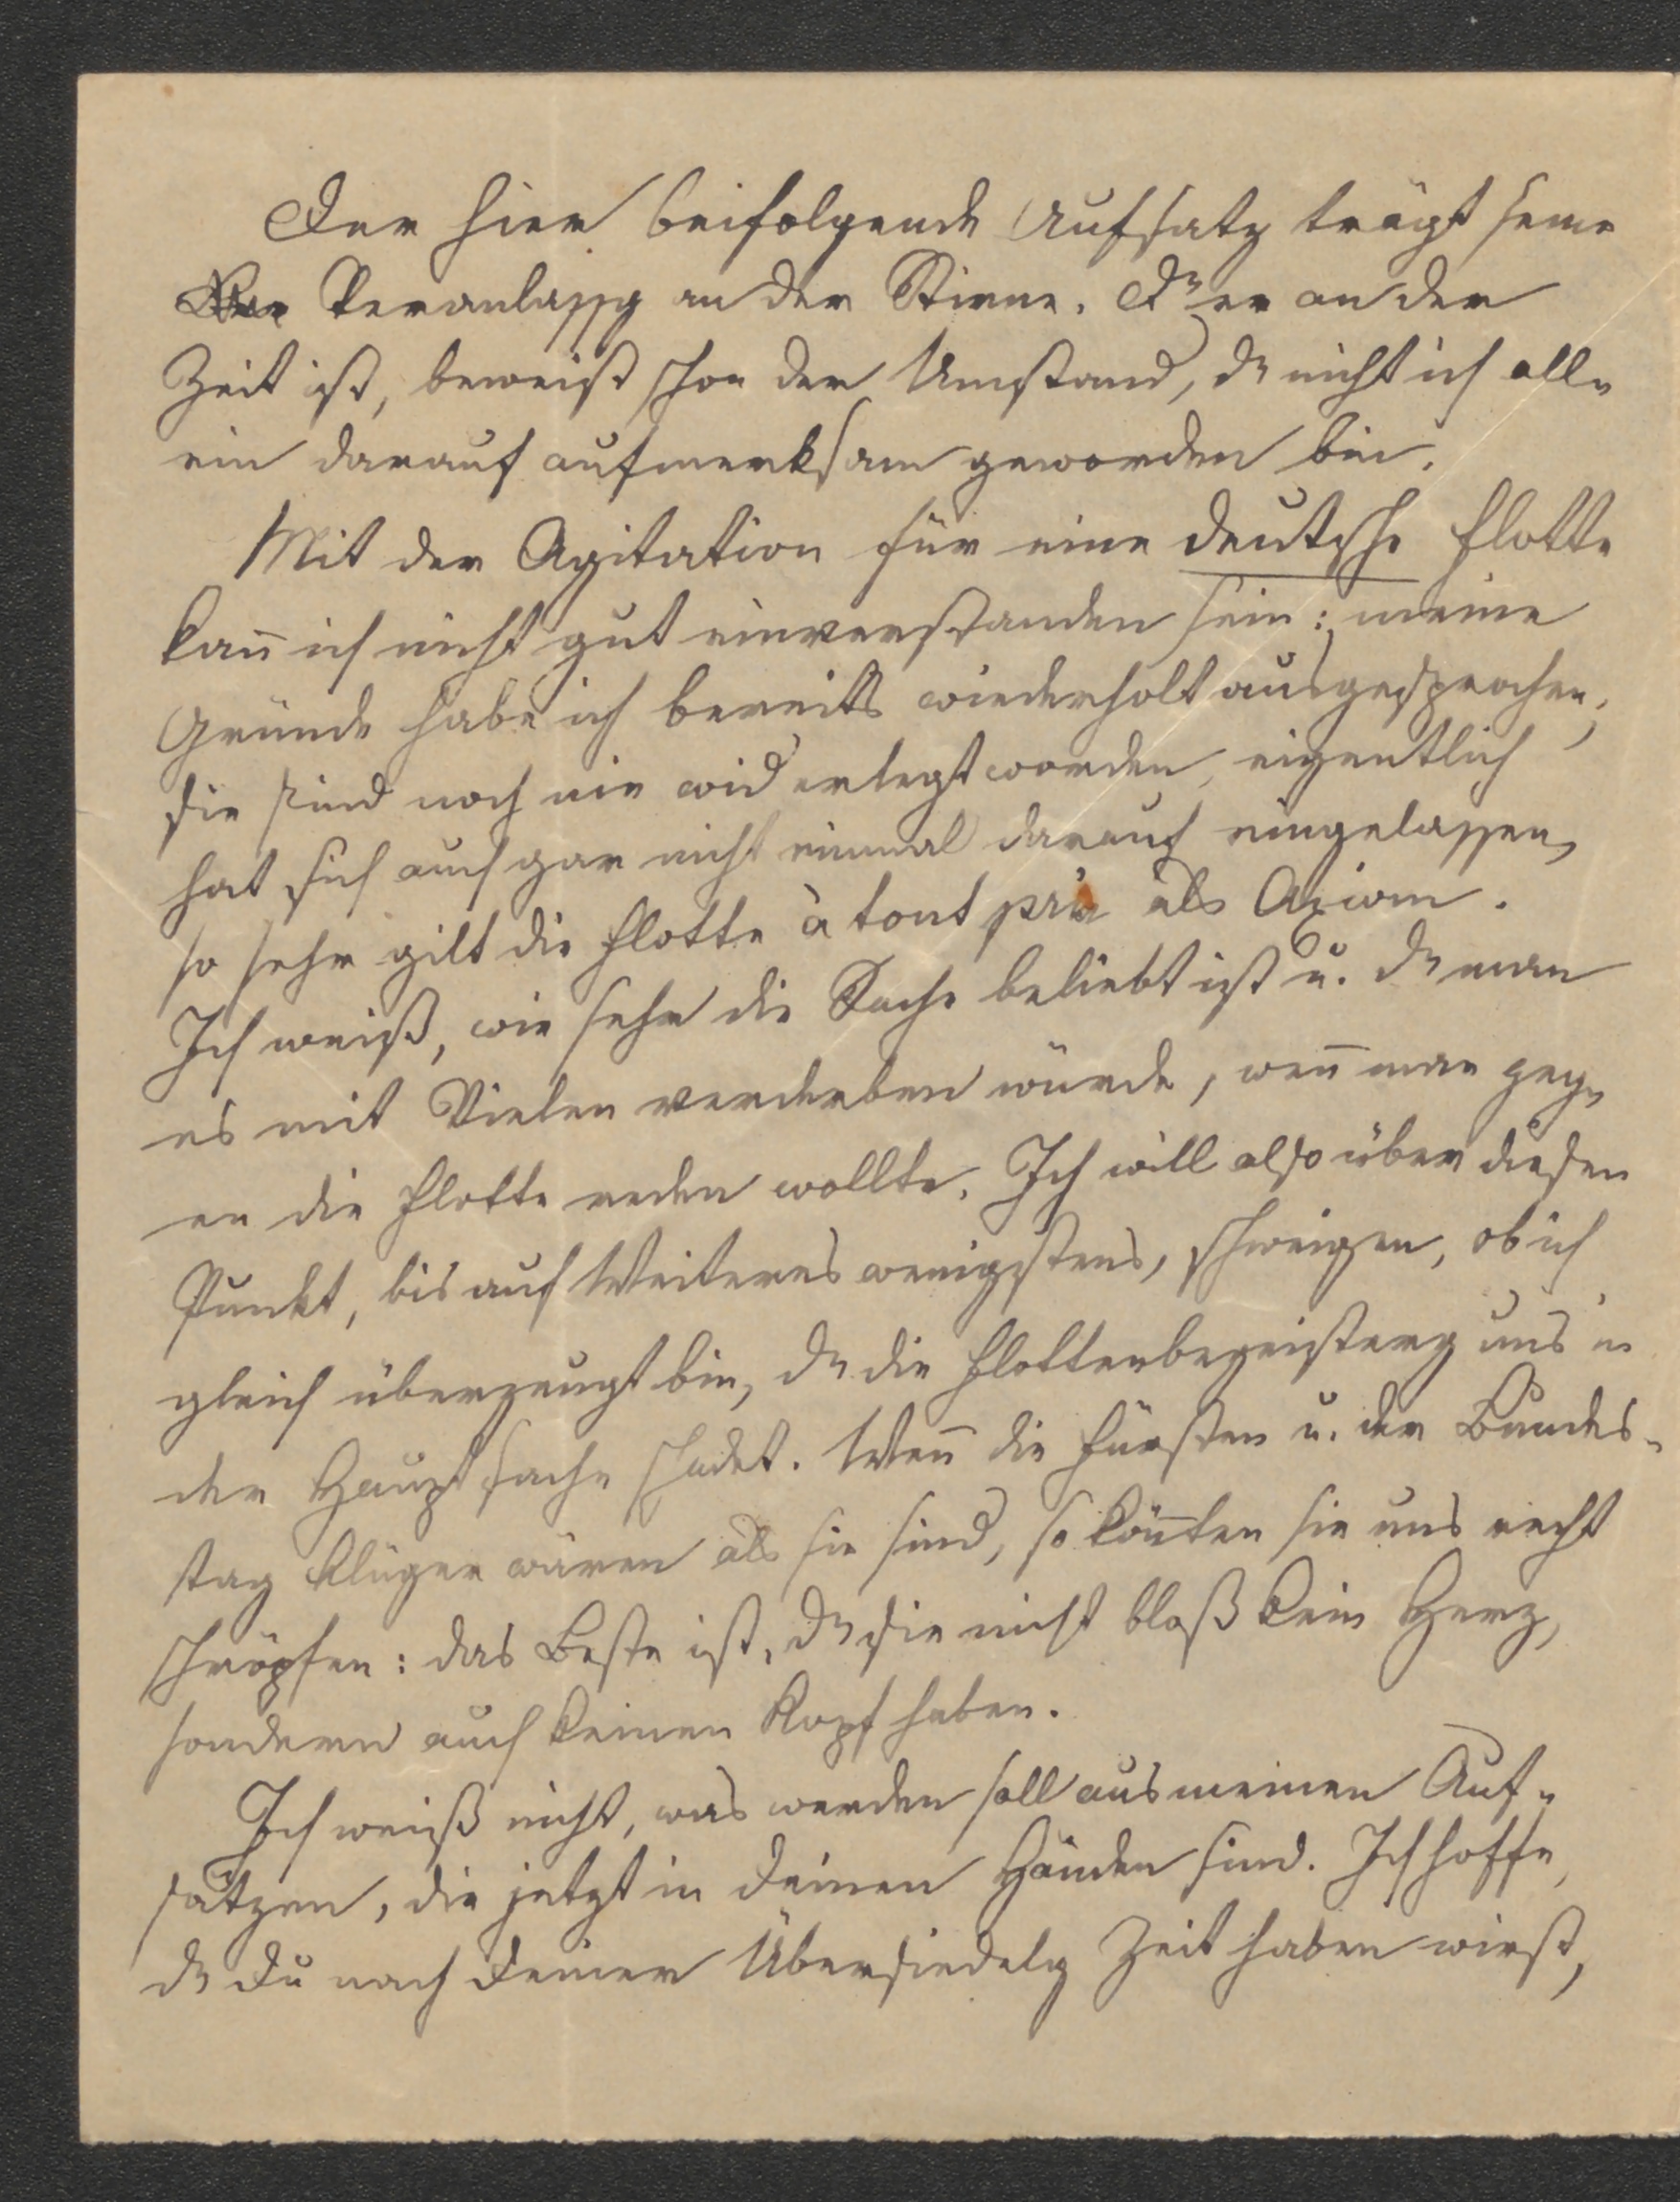 Der hier beifolgende Aufsatz trägt seine
Veranlassg an der Stirne. Dß er an der
Zeit ist, beweist schon der Umstand, dß nicht ich all-
ein darauf aufmerksam geworden bin.
Mit der Agitation für eine deutsche Flotte
kan̄ ich nicht gut einverstanden sein: meine
Gründe habe ich bereits wiederholt ausgesprochen;
sie sind noch nie widerlegt worden, eigentlich
hat sich auch gar nicht einmal darauf eingelassen,
so sehr gilt die Flotte à tout prix als Axiom.
Ich weiß, wie sehr die Sache beliebt ist u. dß man
es mit Vielen verderben würde, wen̄ man geg-
en die Flotte reden wollte. Ich will also über diesen
Punkt, bis auf Weiteres wenigstens, schweigen, ob ich
gleich überzeugt bin, dß die Flottenbegeisterg uns in
der Hauptsache schadet. Wen̄ die Fürsten u. der Bundes-
tag klüger wären als sie sind, so kön̄ten sie uns recht
schröpfen: das Beste ist, dß sie nicht bloß kein Herz,
sondern auch keinen Kopf haben.
Ich weiß nicht, was werden soll aus meinen Auf-
sätzen, die jetzt in Deinen Händen sind. Ich hoffe,
dß Du nach Deiner Übersiedelg Zeit haben wirst,